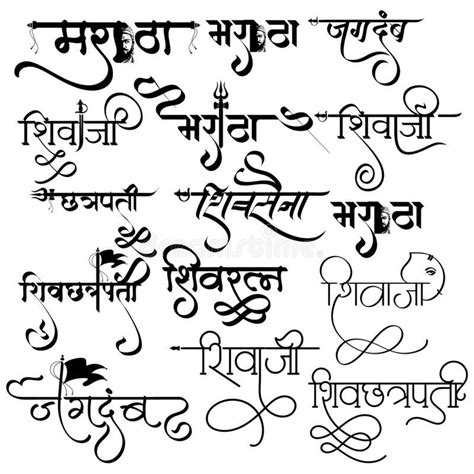 मराठा मराठा जगदंब
शिवाजी मराठा शिवाजी
छत्रपती शिवसेना मराठा
शिवछत्रपती शिवरत्न शिवाजी
जगदंब शिवाजी शिवछत्रपती